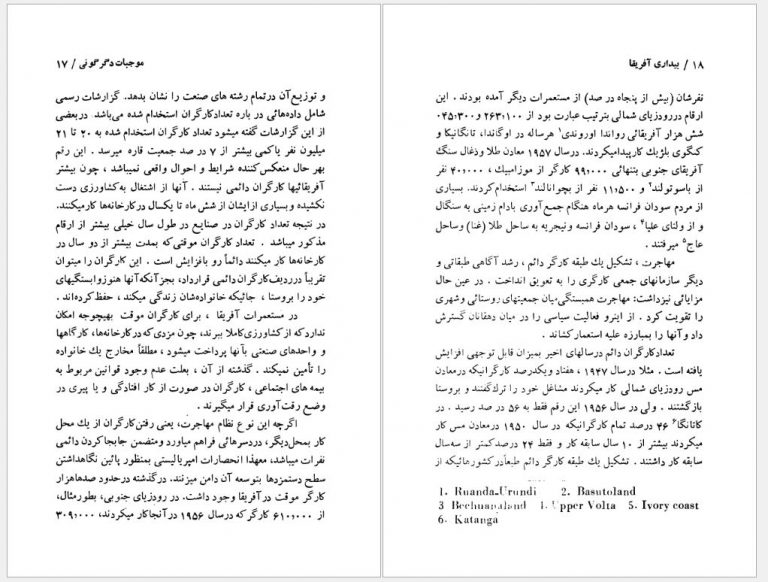 موجبات دگرگونی / ۱۷
و توزیع آن درتمام رشته های صنعت را نشان بدهد. گزارشات رسمی
شامل داده‌هائی در باره تعدادکارگران استخدام شده می‌باشد. دربعضی
از این گزارشات گفته میشود تعداد کارگران استخدام شده به ۲۰ تا ۲۱
میلیون نفر یاکمی بیشتر از ۷ در صد جمعیت قاره میرسد . این رقم
بهر حال منعکس‌کننده شرایط و احوال واقعی نمیباشد ، چون بیشتر
آفریقائیها کارگران دائمی نیستند . آنها از اشتغال به‌کشاورزی دست
نکشیده وبسیاری ازایشان از شش ماه تا یکسال درکارخانه‌ها کارمیکنند.
در نتیجه تعداد کارگران در صنایع در طول سال خیلی بیشتر از ارقام
مذکور میباشد . تعداد کارگران موقتی‌که بمدت بیشتر از دو سال در
کارخانه‌ها کار میکنند دائماً رو بافزایش است . این کارگران را میتوان
تقریباً درردیف‌کارگران دائمی قرارداد، بجزآنکه‌آنها هنوزوابستگیهای
خود را بروستا ، جائیکه خانواده‌شان زندگی میکند ، حفظ کرده‌اند .
در مستعمرات آفریقا ، برای کارگران موقت بهیچوجه امکان
نداردکه ازکشاورزی‌کاملا ببرند، چون مزدی‌که درکارخانه‌ها، کارگاهها
و واحدهای صنعتی بآنها پرداخت میشود ، مطلقاً مخارج یك خانواده
را تأمین نمیکند . گذشته از آن ، بعلت عدم وجود قوانین مربوط به
بیمه های اجتماعی ، کارگران در صورت از کار افتادگی و یا پیری در
وضع رقت‌آوری قرار میگیرند .
اگرچه این نوع نظام مهاجرت، یعنی رفتن‌کارگران از یك محل
کار بمحل‌دیگر، دردسرهائی فراهم میاورد ومتضمن جابجاکردن دائمی
نفرات میباشد، معهذا انحصارات امپریالیستی بمنظور پائین نگاهداشتن
سطح دستمزدها بتوسعه آن دامن میزنند. درگذشته درحدود صدهاهزار
کارگر موقت درآفریقا وجود داشت. در رودزیای جنوبی، بطورمثال،
از ۶۱۰,۰۰۰ کارگر که‌درسال ۱۹۵۶ در آنجاکار میکردند، ۳۰۹,۰۰۰
۱۸ / بیداری آفریقا
نفرشان (بیش از پنجاه در صد) از مستعمرات دیگر آمده بودند . این
ارقام دررودزیای شمالی بترتیب عبارت بود از ۲۶۳,۱۰۰ و ۰۴۵,۳۰۰
شش هزار آفریقائی رواندا اوروندی۱ هرساله در اوگاندا، تانگانیکا و
کنگوی بلژیك کارپیدامیکردند. درسال ۱۹۵۷ معادن طلا وذغال سنگ
آفریقای جنوبی بتنهائی ۹۹,۰۰۰ کارگر از موزامبیك ، ۴۰,۰۰۰ نفر
از باسوتولند۲ و ۱۱,۵۰۰ نفر از بچوانالند۳ استخدام‌کردند. بسیاری
از مردم سودان فرانسه هرماه هنگام جمع‌آوری بادام زمینی به سنگال
و از ولتای علیا۴ ، سودان فرانسه ونیجریه به ساحل طلا (غنا) وساحل
عاج۵ میرفتند .
مهاجرت ، تشکیل یك طبقه کارگر دائم ، رشد آگاهی طبقاتی و
دیگر سازمانهای جمعی کارگری را به تعویق انداخت . در عین حال
مزایائی نیزداشت: مهاجرت همبستگی‌میان جمعیتهای روستائی وشهری
را تقویت کرد . از اینرو فعالیت سیاسی را در میان دهقانان گسترش
داد و آنها را بمبارزه علیه استعمارکشاند .
تعدادکارگران دائم درسالهای اخیر بمیزان قابل توجهی افزایش
یافته است . مثلا درسال ۱۹۴۷ ، هفتاد ویکدرصد کارگرانیکه درمعادن
مس رودزیای شمالی کار میکردند مشاغل خود را ترك‌گفتند و بروستا
بازگشتند . ولی در سال ۱۹۵۶ این رقم فقط به ۵۶ در صد رسید . در
کاتانگا۶ ۴۶ درصد تمام کارگرانیکه در سال ۱۹۵۰ درمعادن مس کار
میکردند بیشتر از ۱۰ سال سابقه کار و فقط ۲۴ درصدکمتر از سه‌سال
سابقه کار داشتند . تشکیل یك طبقه کارگر دائم طبعاًدرکشورهائیکه از
1. Ruanda-Urundi 2. Basutoland
3 Bechuanaland 4. Upper Volta 5. Ivory coast
6. Katanga